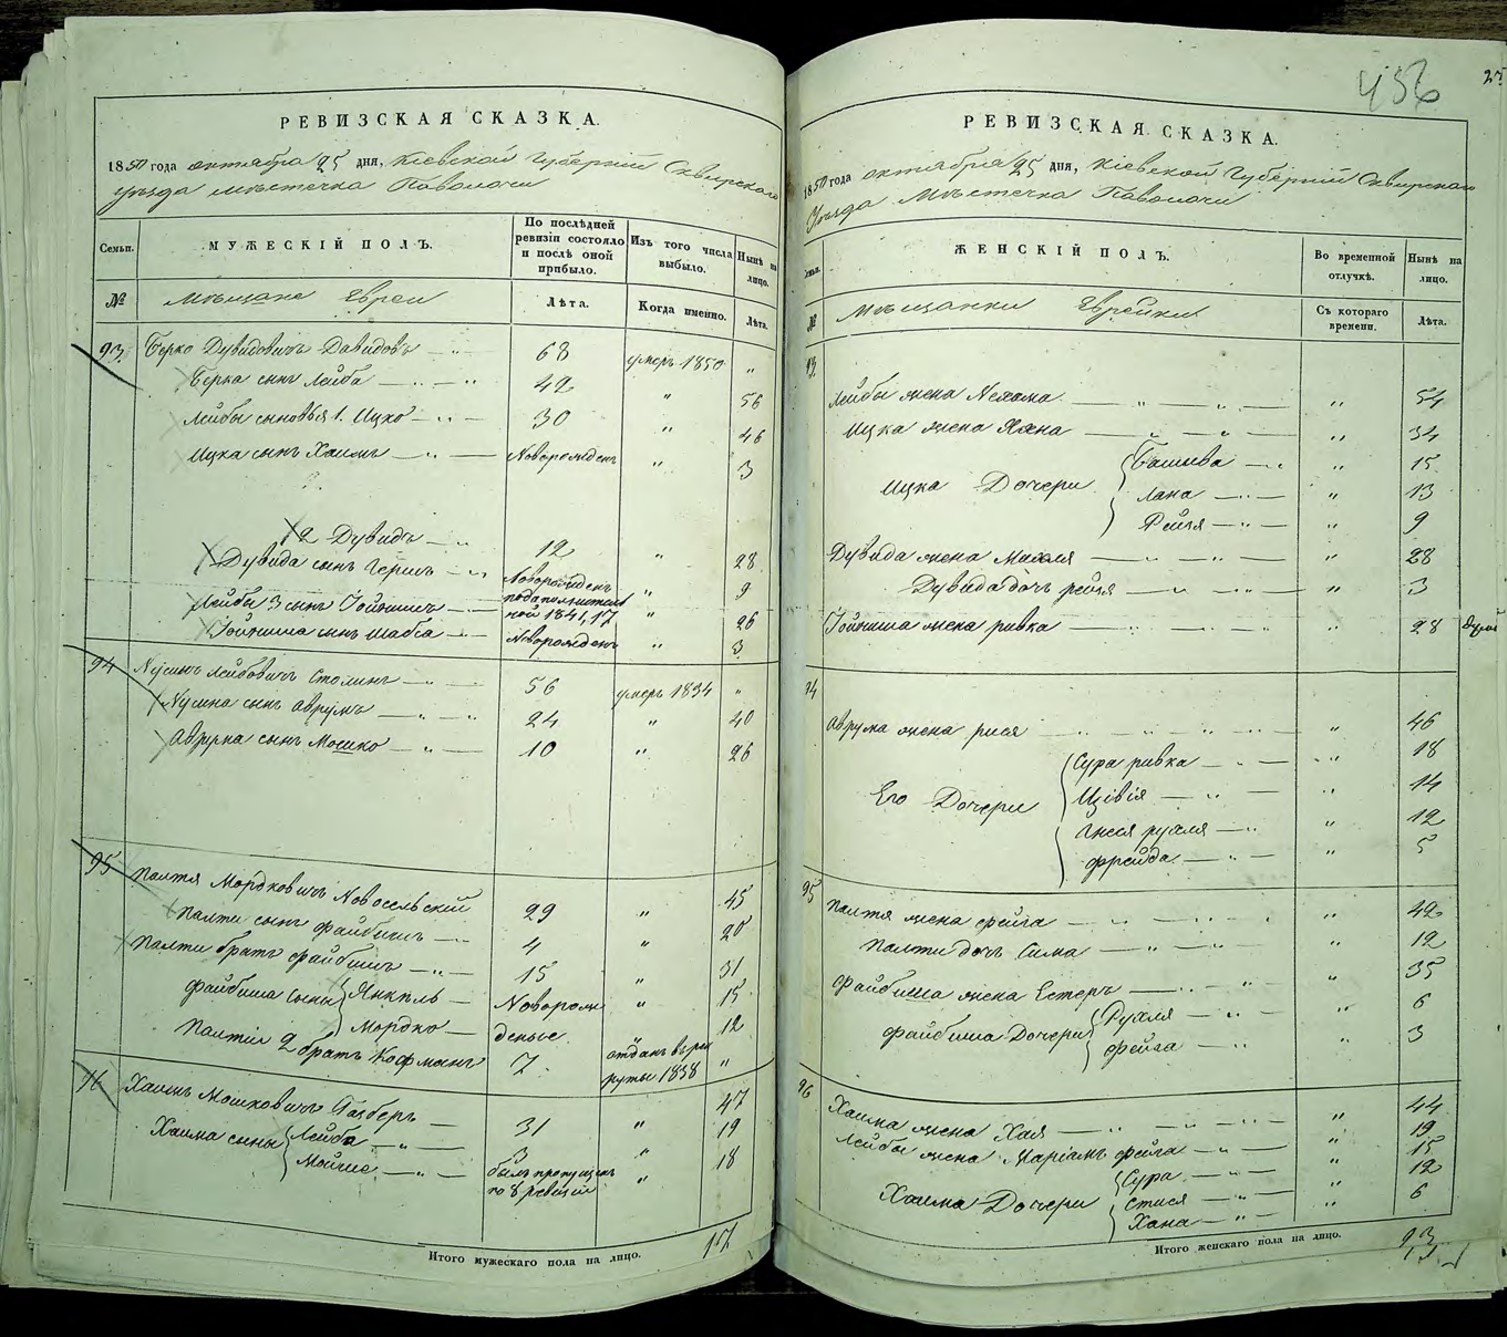 РЕВИЗСКАЯ СКАЗКА.
1850 года октября 25 дня, Кіевской Губерніи Сквирскаго
уѣзда мѣстечка Паволочи
Семьи.
МУЖЕСКІЙ ПОЛЪ.
По послѣдней ревизіи состояло и послѣ оной прибыло.
Изъ того числа выбыло.
Нынѣ на лицо.
№
Мѣщане Евреи
Лѣта.
Когда именно.
Лѣта.
93 Берко Дувидовичъ Давидовъ — 68 умеръ 1850 "
Берка сынъ Лейба — 42 " 56
Лейбы сыновья 1. Ицко — 30 " 46
Ицка сынъ Хаимъ — Новорожденъ " 3
2 Дувидъ — 12 " 28
Дувида сынъ Гершъ — Новорожденъ " 9
Лейбы 3 сынъ Іойнишъ — по дополнительной 1841, 17 " 26
Іойниша сынъ Шабса — Новорожденъ " 3
94 Нусинъ Лейбовичъ Столинъ — 56 умеръ 1834 "
Нусина сынъ Аврумъ — 24 " 40
Аврума сынъ Мошко — 10 " 26
95 Палтя Мордковичъ Новосельскій 29 " 45
Палти сынъ Файбишъ — 4 " 20
Палти братъ Файбишъ — 15 " 31
Файбиша сыны Янкель — Новорож " 15
Мордко — денные " 12
Палтія 2 братъ Кофманъ 7 отданъ въ рекруты 1838 "
96 Хаимъ Мошковичъ — 31 " 47
Хаима сыны Лейба — 3 " 19
Мойше — былъ пропущенъ по 8 ревизіи " 18
Итого мужескаго пола на лицо. 17
456
РЕВИЗСКАЯ СКАЗКА.
1850 года октября 25 дня, Кіевской Губерніи Сквирскаго
Уѣзда Мѣстечка Паволочи
ЖЕНСКІЙ ПОЛЪ.
Во временной отлучкѣ.
Нынѣ на лицо.
№
Мѣщанки Еврейки
Съ котораго времени.
Лѣта.
93
Лейбы жена Нехама — " 54
Ицка жена Хана — " 34
Ицка Дочери Башива — " 15
Лана — " 13
Рейзя — " 9
Дувида жена Махля — " 28
Дувида дочь рейзя — " 3
Іойниша жена ривка — " 28
94
Аврума жена рися — " 46
Его Дочери Сура ривка — " 18
Цівія — " 14
Рухля — " 12
Фрейда — " 5
95 Палтя жена Фейга — " 42
Палти дочь Сима — " 12
Файбиша жена Естеръ — " 35
Файбиша Дочери Рухля — " 6
Фейга — " 3
96 Хаима жена Хая — " 44
Лейбы жена Маріамъ Фейга — " 19
Хаима Дочери Сура — " 15
Стися — " 12
Хана — " 6
Итого женскаго пола на лицо. 23